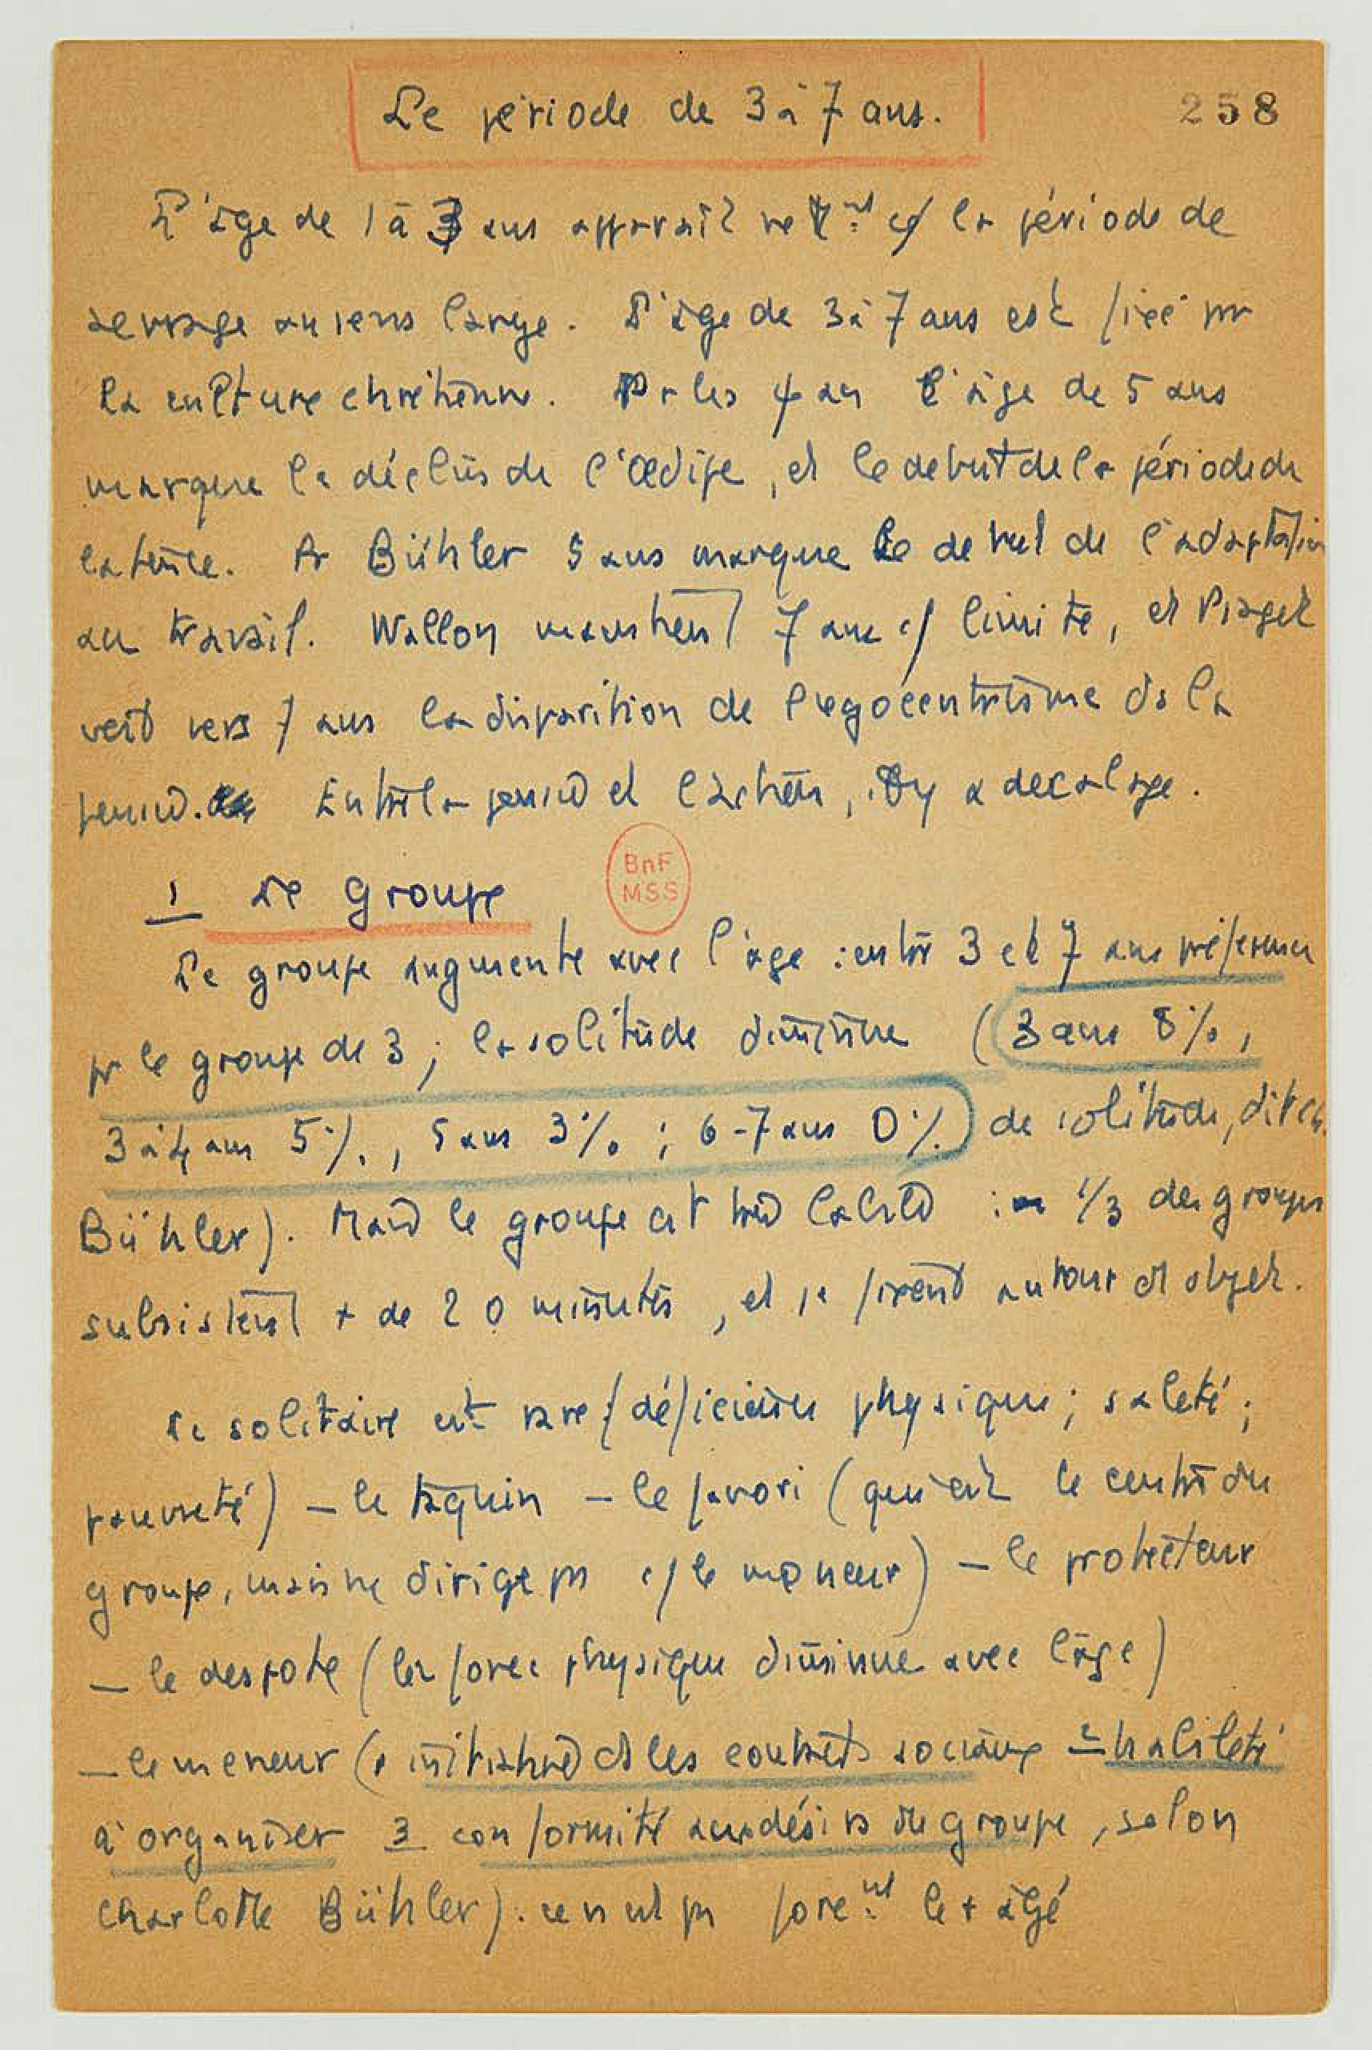 La période de 3 à 7 ans.
258
L'âge de 1 à 3 ans apparait c/ la période de
sevrage au sens large. L'âge de 3 à 7 ans est fixé par
la culture chrétienne. Pr les ψan l'âge de 5 ans
marque le déclin de l'Œdipe, et le debut de la période de
latence. Pr Bühler 5 ans marque le debut de l'adaptation
au travail. Wallon maintient 7 ans c/ limite, et Piaget
voit vers 7 ans la disparition de l'egocentrisme ds la
pensée. Entre la pensée et l'action, il y a decalage.
1 Le groupe
BnF
MSS
Le groupe augmente avec l'âge : entre 3 et 7 ans préférence
pr le groupe de 3 ; la solitude diminue (3 ans 8%,
3 à 4 ans 5%, 5 ans 3% ; 6-7 ans 0% de solitude, dit Ch.
Bühler). Mais le groupe est très labile : 1/3 des groupes
subsistent + de 20 minutes, et se fixent autour d'1 objet.
Le solitaire est rare (déficience physique ; saleté ;
pauvreté) — le taquin — le favori (qui est le centre du
groupe, mais ne dirige pas c/ le meneur) — le protecteur
— le despote (la force physique diminue avec l'âge)
— le meneur (1 initiative ds les contacts sociaux 2 habileté
à organiser 3 conformité aux désirs du groupe, selon
Charlotte Bühler). ce n'est pas forcᵗ le + âgé